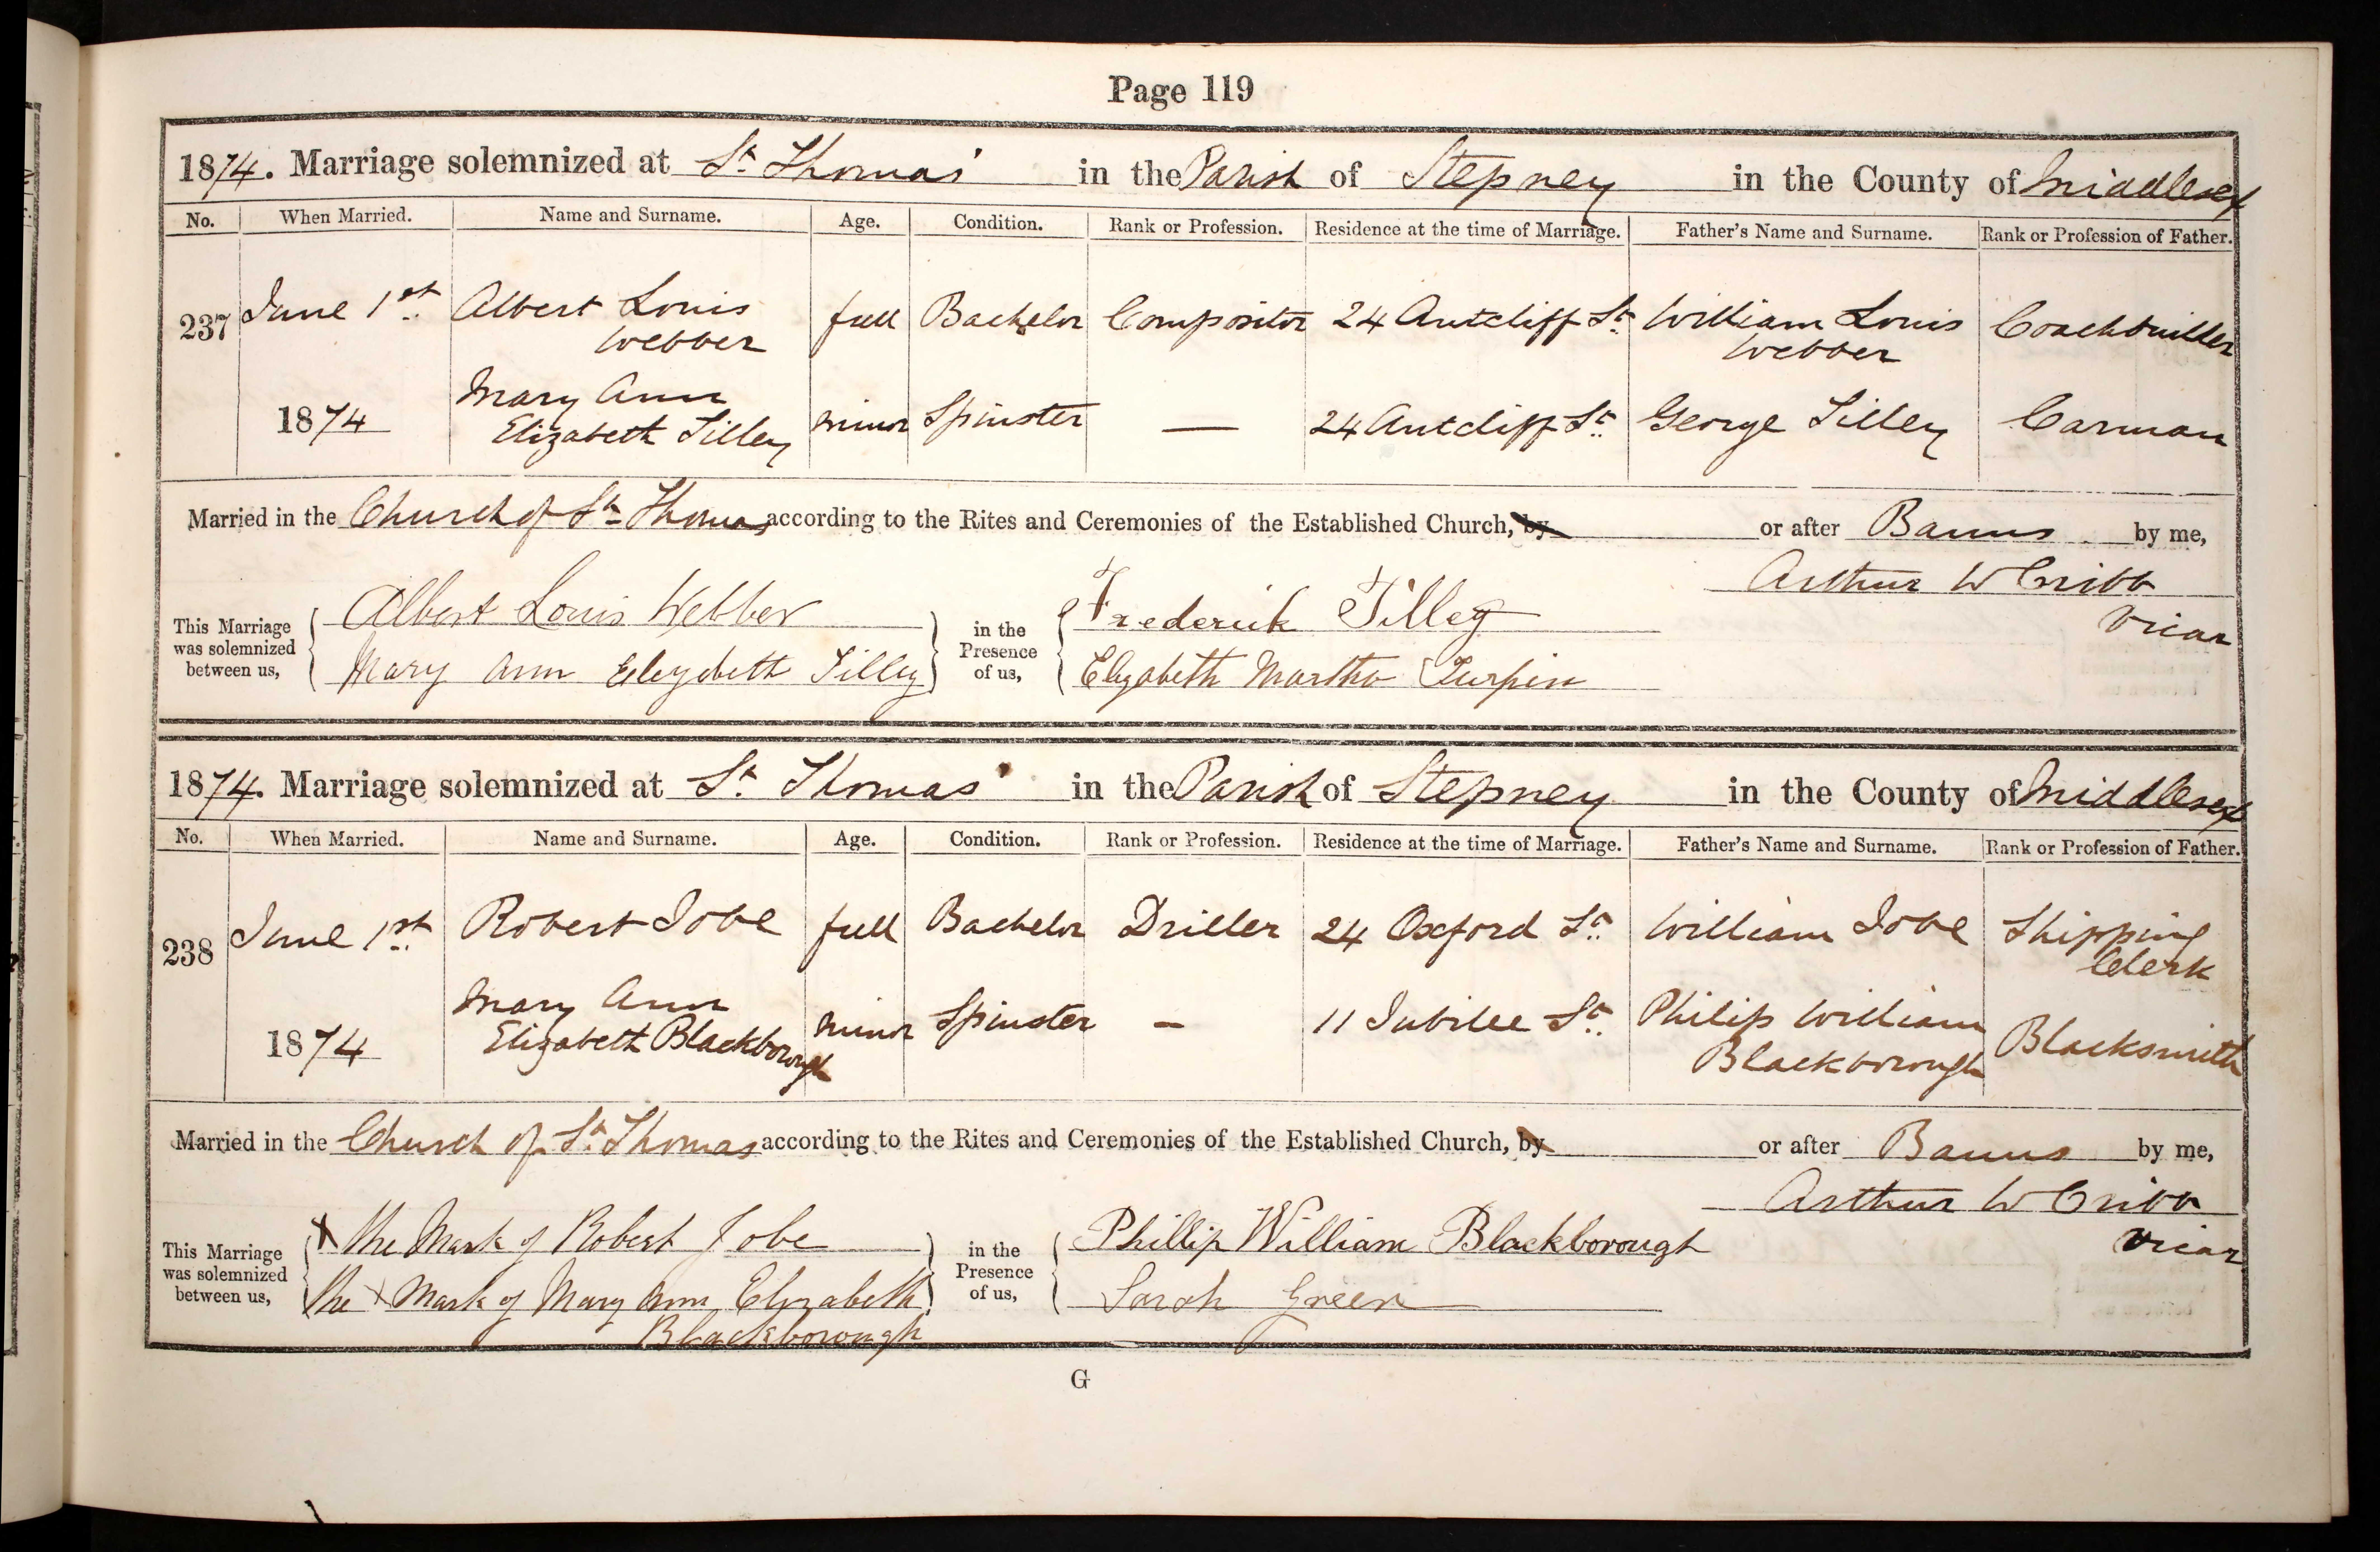 Page 119
1874. Marriage solemnized at St. Thomas' in the Parish of Stepney in the County of Middlesex
No. When Married. Name and Surname. Age. Condition. Rank or Profession. Residence at the time of Marriage. Father's Name and Surname. Rank or Profession of Father.
237 June 1st. Albert Louis Webber full Bachelor Compositor 24 Antcliff St. William Louis Webber Coachbuilder
1874 Mary Ann Elizabeth Tilley minor Spinster — 24 Antcliff St. George Tilley Carman
Married in the Church of St. Thomas according to the Rites and Ceremonies of the Established Church, by or after Banns by me,
Arthur W Cribb
Vicar
This Marriage was solemnized between us,
Albert Louis Webber
Mary Ann Elizabeth Tilley
in the Presence of us,
Frederick Tilley
Elizabeth Martha Turpin
1874. Marriage solemnized at St. Thomas' in the Parish of Stepney in the County of Middlesex
No. When Married. Name and Surname. Age. Condition. Rank or Profession. Residence at the time of Marriage. Father's Name and Surname. Rank or Profession of Father.
238 June 1st. Robert Jobe full Bachelor Driller 24 Oxford St. William Jobe Shipping Clerk
1874 Mary Ann Elizabeth Blackborough minor Spinster – 11 Jubilee St. Philip William Blackborough Blacksmith
Married in the Church of St. Thomas according to the Rites and Ceremonies of the Established Church, by or after Banns by me,
Arthur W Cribb
Vicar
This Marriage was solemnized between us,
X the Mark of Robert Jobe
the X Mark of Mary Ann Elizabeth
Blackborough
in the Presence of us,
Phillip William Blackborough
Sarah Green
G